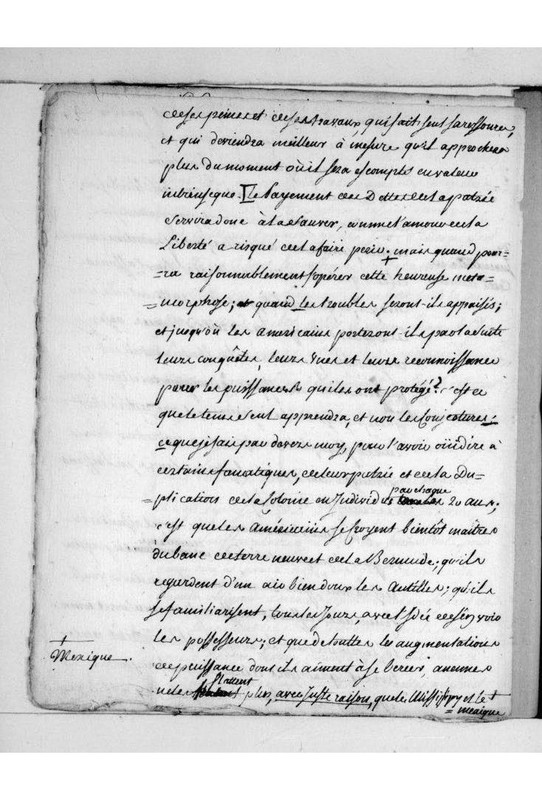 de ses peines et de ses travaux, qui fait seul sa ressource,
et qui deviendra meilleur à mesure qu'il approchera
plus du moment où il sera escompté en valeur
intrinseque. Le Payement des Dettes de la patrie
servira donc à la sauver, comme l'amour de la
Liberté a risqué de la faire perir. mais quand pour=
=ra raisonnablement s'opérer cette heureuse meta=
=morphose; quand les troubles seront-ils appaisés;
et jusqu'où les americains porteront-ils par la suite
leurs conquêtes, leurs vues et leur reconnoissance
pour les puissances qui les ont protégé? c'est ce
que le tems seul apprendra, et non les Conjectures.
ce que je sais par devers moy, pour l'avoir oui dire à
certains fanatiques, de leur patrie et de la Du=
=plication de la Colonie en Individus par chaque 20 ans,
c'est que les Américains se croyent bientôt maitres
du banc de terre neuve et de la Bermude; qu'ils
regardent d'un air bien doux les Antilles; qu'ils
se familiarisent, tous les Jours, avec l'Idée d'en voir
les possesseurs; et que de toutes les augmentations
de puissance dont ils aiment à se bercer, aucune
ne les flattent plus, avec juste raison, que le Mississipy et le
= mexique
Mexique.